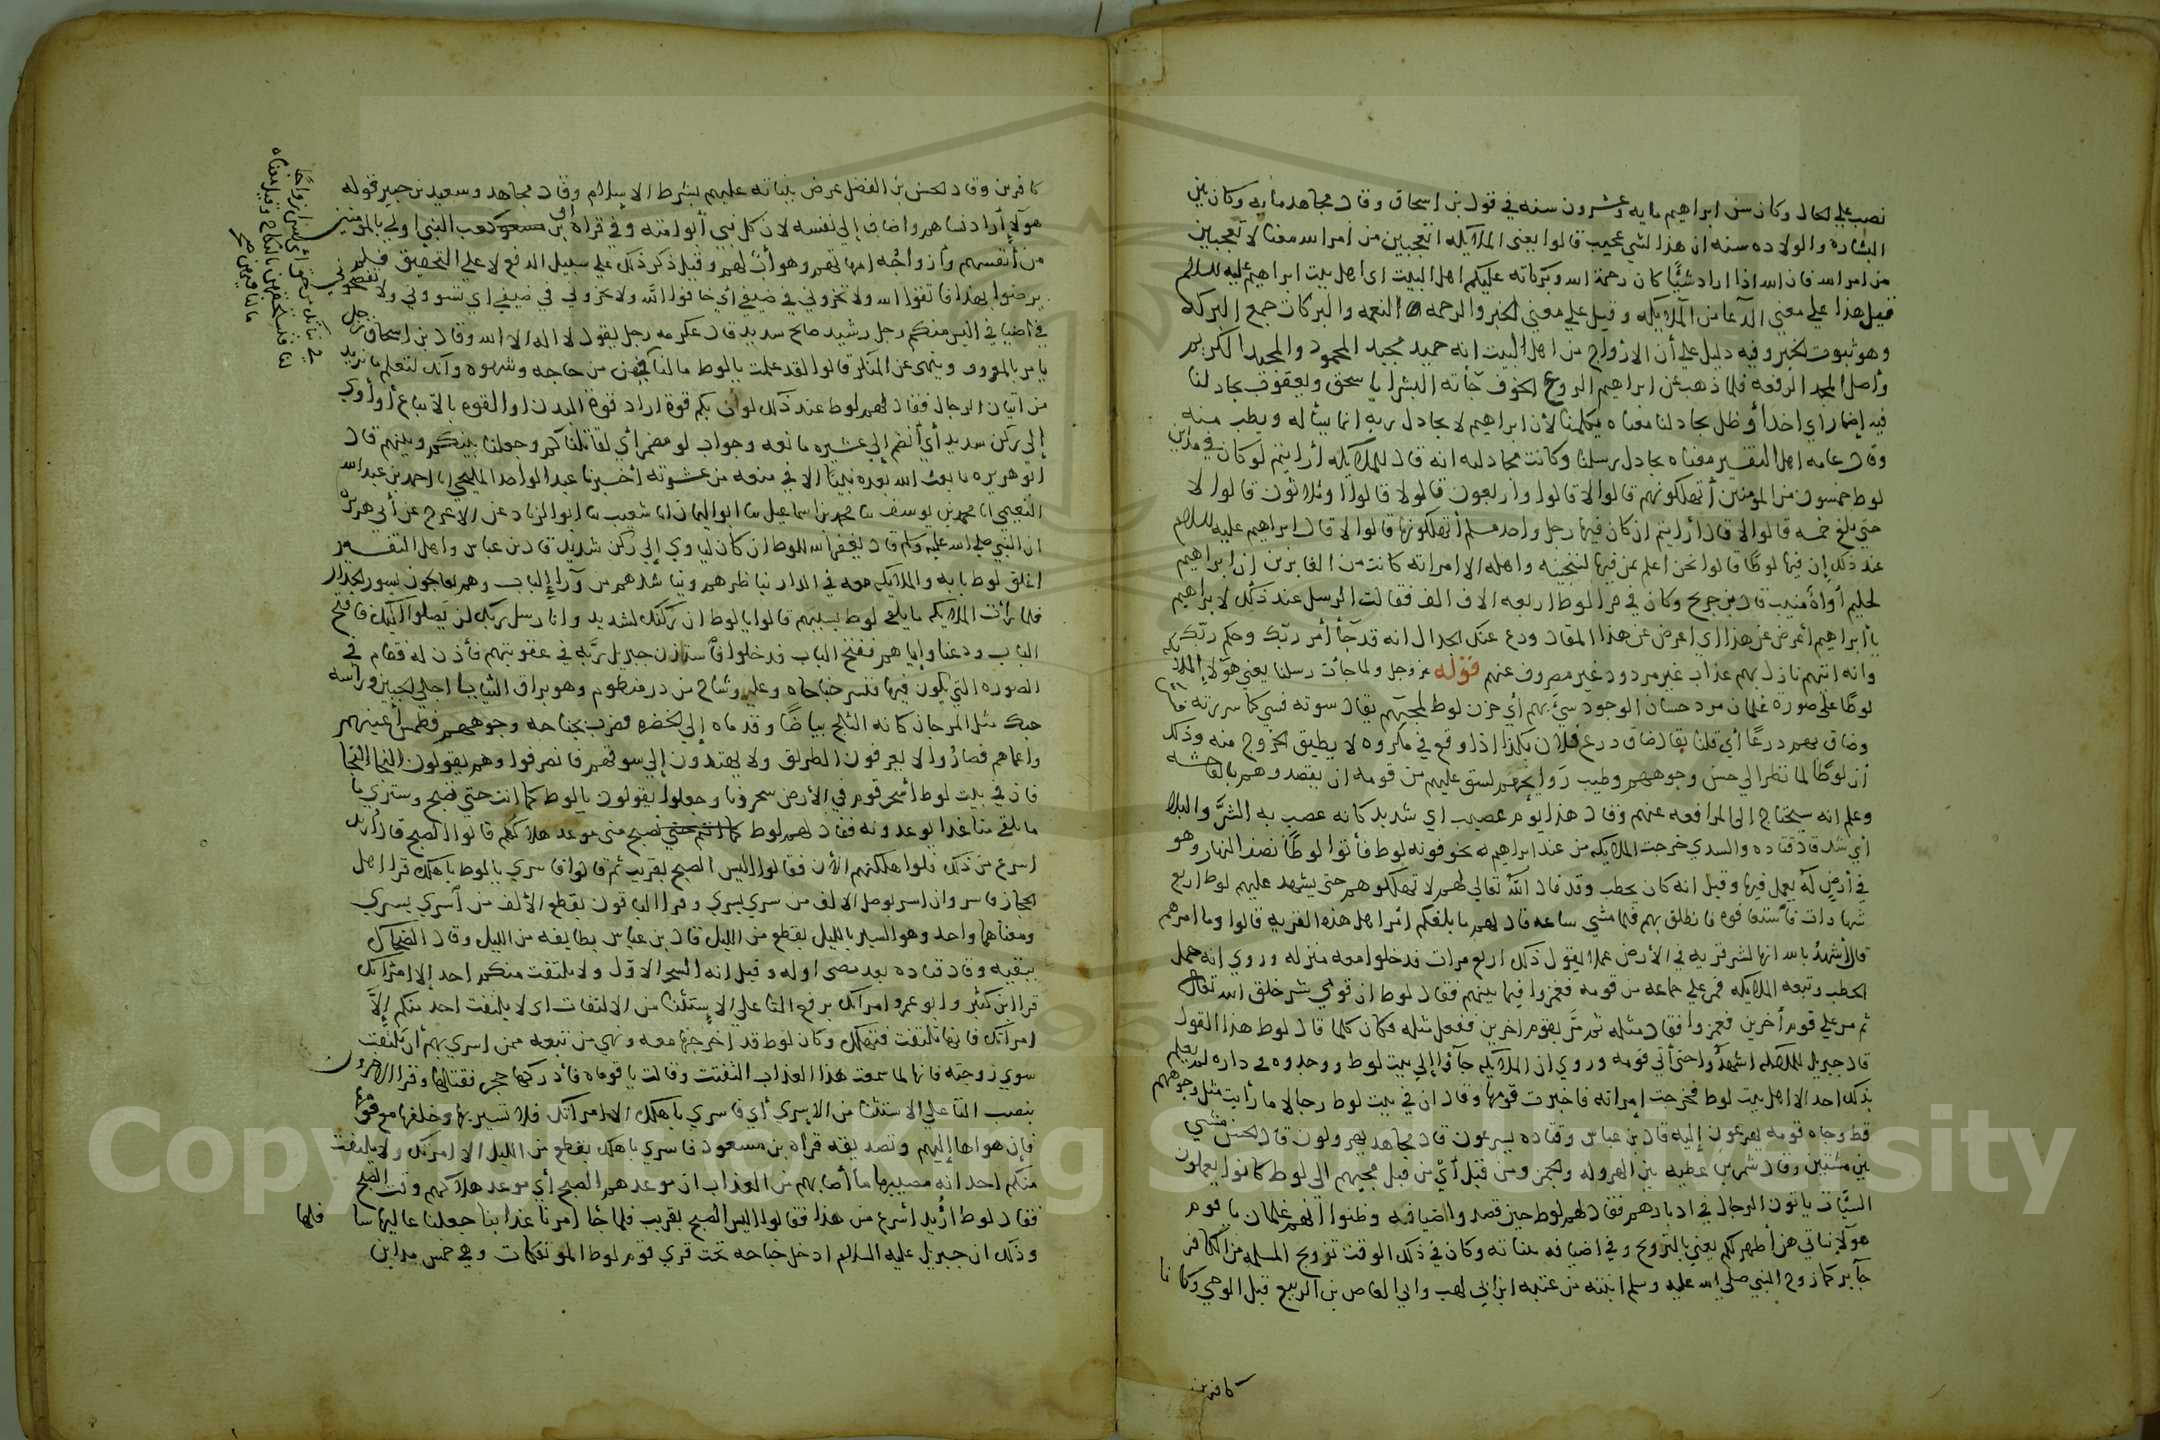 نصب علي الحال وكان سن ابراهيم مايه وعشرون سنه في قول بن اسحاق وقال مجاهد مايه وكان بين
البشارة والولاده سنه ان هذا لشي عجيب قالوا يعني الملايكه اتعجبين من امر الله معنا لا تعجبين
من امر الله فان الله اذا اراد شيًا كان رحمة الله وبركاته عليكم اهل البيت اي اهل بيت ابراهيم عليه السلام
قيل هذا علي معني الدعا من الملايكه وقيل علي معني الخبر والرحمه النعمه والبركات جمع البركه
وهو ثبوت الخير وفيه دليل علي أن الازواج من اهل البيت انه حميد مجيد المحمود والمجيد الكريم
وأصل المجد الرفعه فلما ذهب عن ابراهيم الروع الخوف جأته البشرا با سحق ويعقوب يجادلنا
فيه إضمار اي اخذ أو ظل يجادلنا معناه يكلمنا لأن ابراهيم لا يجادل ربه انما يسأله ويطلب منه
وقال عامه اهل التفسير معناه يجادل رسلنا وكانت مجادلته انه قال للملايكه أرايتم لو كان في مداين
لوط خمسون من المومنين أتهلكونهم قالوا لا قال او اربعون قالو لا قال او ثلاثون قالوا لا
حتي بلغ خمسه قالوا لا قال أرايتم ان كان فيها رجل واحد مسلم أتهلكونها قالوا لا قال ابراهيم عليه السلام
عند ذلك إن فيها لوطًا قالوا نحن اعلم بمن فيها لننجينه واهله الا امراته كانت من الغابرين ان ابراهيم
لحليم أواه منيب قال بن جريج وكان في قرا لوط اربعه الاف الف فقالت الرسل عند ذلك لابراهيم
يا ابراهيم أعرض عن هذا اي اعرض عن هذا المقال ودع عنك الجدال انه قد جأ أمر ربّك وحكم ربّك
وانه اتيهم نازل بهم عذاب غير مردود غير مصروف عنهم قوله عز وجل ولما جأت رسلنا يعني هولا الملايكه
لوطًا علي صورة غلمان مرد حسان الوجوه سيء بهم أي حزن لوط لمجيهم يقال سوته فسي كما سررته
وضاق بهم درعًا أي قلبًا يقال ضاق درع فلان بكذا اذا وقع في مكروه لا يطيق الخروج منه وذلك
أن لوطًا لما نظر الي حسن وجوههم وطيب روايحهم اشفق عليهم من قومه ان يقصدوهم بالفاحشه
وعلم انه سيحتاج الى المدافعه عنهم وقال هذا يوم عصيب اي شديد كانه عصب به الشرّ والبلا
أي شد قال قتاده والسدي خرجت الملايكه من عند ابراهيم نحو قريه لوط فأتوا لوطًا نصف النهار وهو
في أرض له يعمل فيها وقيل انه كان يحطب وقد قال الله تعالي لهم لا تهلكوهم حتي يشهد عليهم لوط اربع
شهادات فأستضافوه فانطلق بهم فلما مشي ساعه قال لهم ما بلغكم امر اهل هذه القريه قالوا وما امرهم
قال أشهد بالله انها لشر قريه في الأرض عملا يقول ذلك اربع مرات فدخلوا معه منزله وروي انه حمل
الحطب وتبعه الملايكه فمر علي جماعه من قومه فغمزوا فيما بينهم فقال لوط ان قومي شر خلق الله تعالي
ثم مر علي قوم أخرين فغمزوا فقال مثله ثم مرّ بقوم اخرين ففعل مثله فكان كلما قال لوط هذا القول
قال جبريل للملايكه اشهدوا حتي أتي قومه وروي ان الملايكه جآوا إلي بيت لوط ووجدوه في داره لم يعلم
بذلك احد الا اهل بيت لوط فخرجت إمراته فاخبرت قومها وقال ان في بيت لوط رجالا ما رأيت مثل وجوههم
قط وجاه قومه يهرعون إليه قال بن عباس وقتاده يسرعون قال مجاهد يهرولون قال الحسن مشي
بين مشيين وقال شمر بن عطيه بين الهروله والجمز ومن قبل أيّ من قبل مجيهم الي لوط كانوا يعملون
السيّات ياتون الرجال في ادبارهم فقال لهم لوط حين قصدوا اضيافه وظنوا انهم غلمان يا قوم
هولآ بناتي هن أطهر لكم يعني بالتزويج وفي اضيافه بناته وكان في ذلك الوقت تزويج المسلمه من الكافر
جآيز كما زوج النبي صلي الله عليه وسلم ابنته من عتبه ابن ابي لهب وابي العاص بن الربيع قبل الوحي وكانا
كافرين
كافرين وقال الحسن بن الفضل عرض بناته عليهم بشرط الاسلام وقال مجاهد وسعيد بن جبير قوله
هولآ أراد نساهم واضاف إلي نفسه لان كل نبي أبو امته وفي قراة بن كعب النبي اولي بالمومنين
من أنفسهم وأزواجُه امهاتهم وهو أب لهم وقيل ذكر ذلك علي سبيل الدفع لا علي التحقيق فلم
يرضوا بهذا فاتقوا الله ولا تخزوني في ضيفي أي خافوا الله ولا تخزوني في ضيفي اي تسووني ولا تفضحوني
في اضيافي اليس منكم رجل رشيد صالح سديد قال عكرمه رجل يقول لا اله الا الله وقال بن اسحاق رجل
يامر بالمعروف وينهى عن المنكر قالوا لقد علمت يا لوط ما لنا في من حاجه وشهوه وانك لتعلم ما نريد
من اتيان الرجال فقال لهم لوط عند ذلك لوأن بكم قوة اراد قوة البدن او القوه بالاتباع أو أوي
إلي ركن سديد أي أنضم إلي عشيره مانعه وجواب لو مضمر أي لقاتلناكم وحلنا بينكم وبينهم قال
ابو هريره ما بعث الله بعده نبيًا الا في منعه من عشيرته أخبرنا عبد الواحد المليحي انا احمد بن عبد الله
النعيمي انا محمد بن يوسف نا محمد بن اسماعيل نا ابو اليمان انا شعيب نا ابو الزناد عن الاعرج عن أبي هريرة
ان النبي صلي الله عليه وسلم قال يغفر الله للوط ان كان لياوي إلي ركن شديد قال بن عباس واهل التفسير
اغلق لوط بابه والملايكه معه في الدار يناظرهم ويناشدهم من ورآ الباب وهم يعالجون تسور الجدار
فلما رأت الملايكه ما يلقي لوط بسببهم قالوا يا لوط ان ركنك لشديد وانا رسل ربّك لن يصلوا اليك فافتح
الباب ودعنا وإياهم ففتح الباب فدخلوا فأستأذن جبريل ربّه في عقوبتهم فأذن له فقام في
الصوره التي يكون فيها فنشر جناحاه وعليه وشاح من در منظوم وهو براق الثنايا اجلي الجبين وراسه
حبك مثل المرجان كانه الثلج بياضًا وقدماه إلي الخضره فضرب بجناحه وجوههم فطمس أعينهم
واعماهم فصاروا لا يعرفون الطريق ولا يهتدون إلي سوقهم فانصرفوا وهم يقولون النجا النجا
فان في بيت لوط أسحر قوم في الأرض سحرونا وجعلوا يقولون يا لوط كما انت حتي نصبح وستري ما
ما تلقي منا غدا يوعدونه فقال لهم لوط متي موعد هلاكهم قالوا الصبح قال أريد
اسرع من ذلك فلو اهلكتهم الأن فقالوا اليس الصبح بقريب ثم قالوا فاسري يا لوط باهلك قرا اهل
الحجاز فاسر وان اسر بوصل الالف من سري يسري وقرا الباقون بقطع الألف من أسري يسري
ومعناهما واحد وهو السير بالليل بقطع من الليل قال بن عباس بطايفه من الليل وقال الضحاك
ببقيه وقال قتاده بعد مضي اوله وقيل انه السحر الاول ولا يلتفت منكم احد إلا امرأتك
قرا ابن كثير وابو عمرو امراتك برفع التا علي الإستثنا من الالتفات اي لا يلتفت احد منكم إلا
امراتك فانها تلتفت فتهلك وكان لوط قد اخرجها معه ونهي من تبعه ممن اسري بهم أن يلتفت
سوي زوجته فانها لما سمعت هذا العذاب التفتت وقالت يا قوماه فأدركها حجر فقتلها وقرا الاخرون
بنصب التا علي الاستثنا من الإسري أي فاسري باهلك الا امراتك فلا تسير بها وخلفها مع قومها
فإن هواها إليهم وتصديقه قراة بن مسعود فاسري باهلك بقطع من الليل الا امرتك ولا يلتفت
منكم احد انه مصيبها ما أصابهم من العذاب ان موعدهم الصبح أي موعد هلاكهم وقت الصبح
فقال لوط اريد أسرع من هذا فقالوا اليس الصبح بقريب فلما جا امرنا عذابنا جعلنا عاليها سافلها
وذلك ان جبريل عليه السلام ادخل جناحه تحت قري قوم لوط الموتفكات وهي خمس مداين